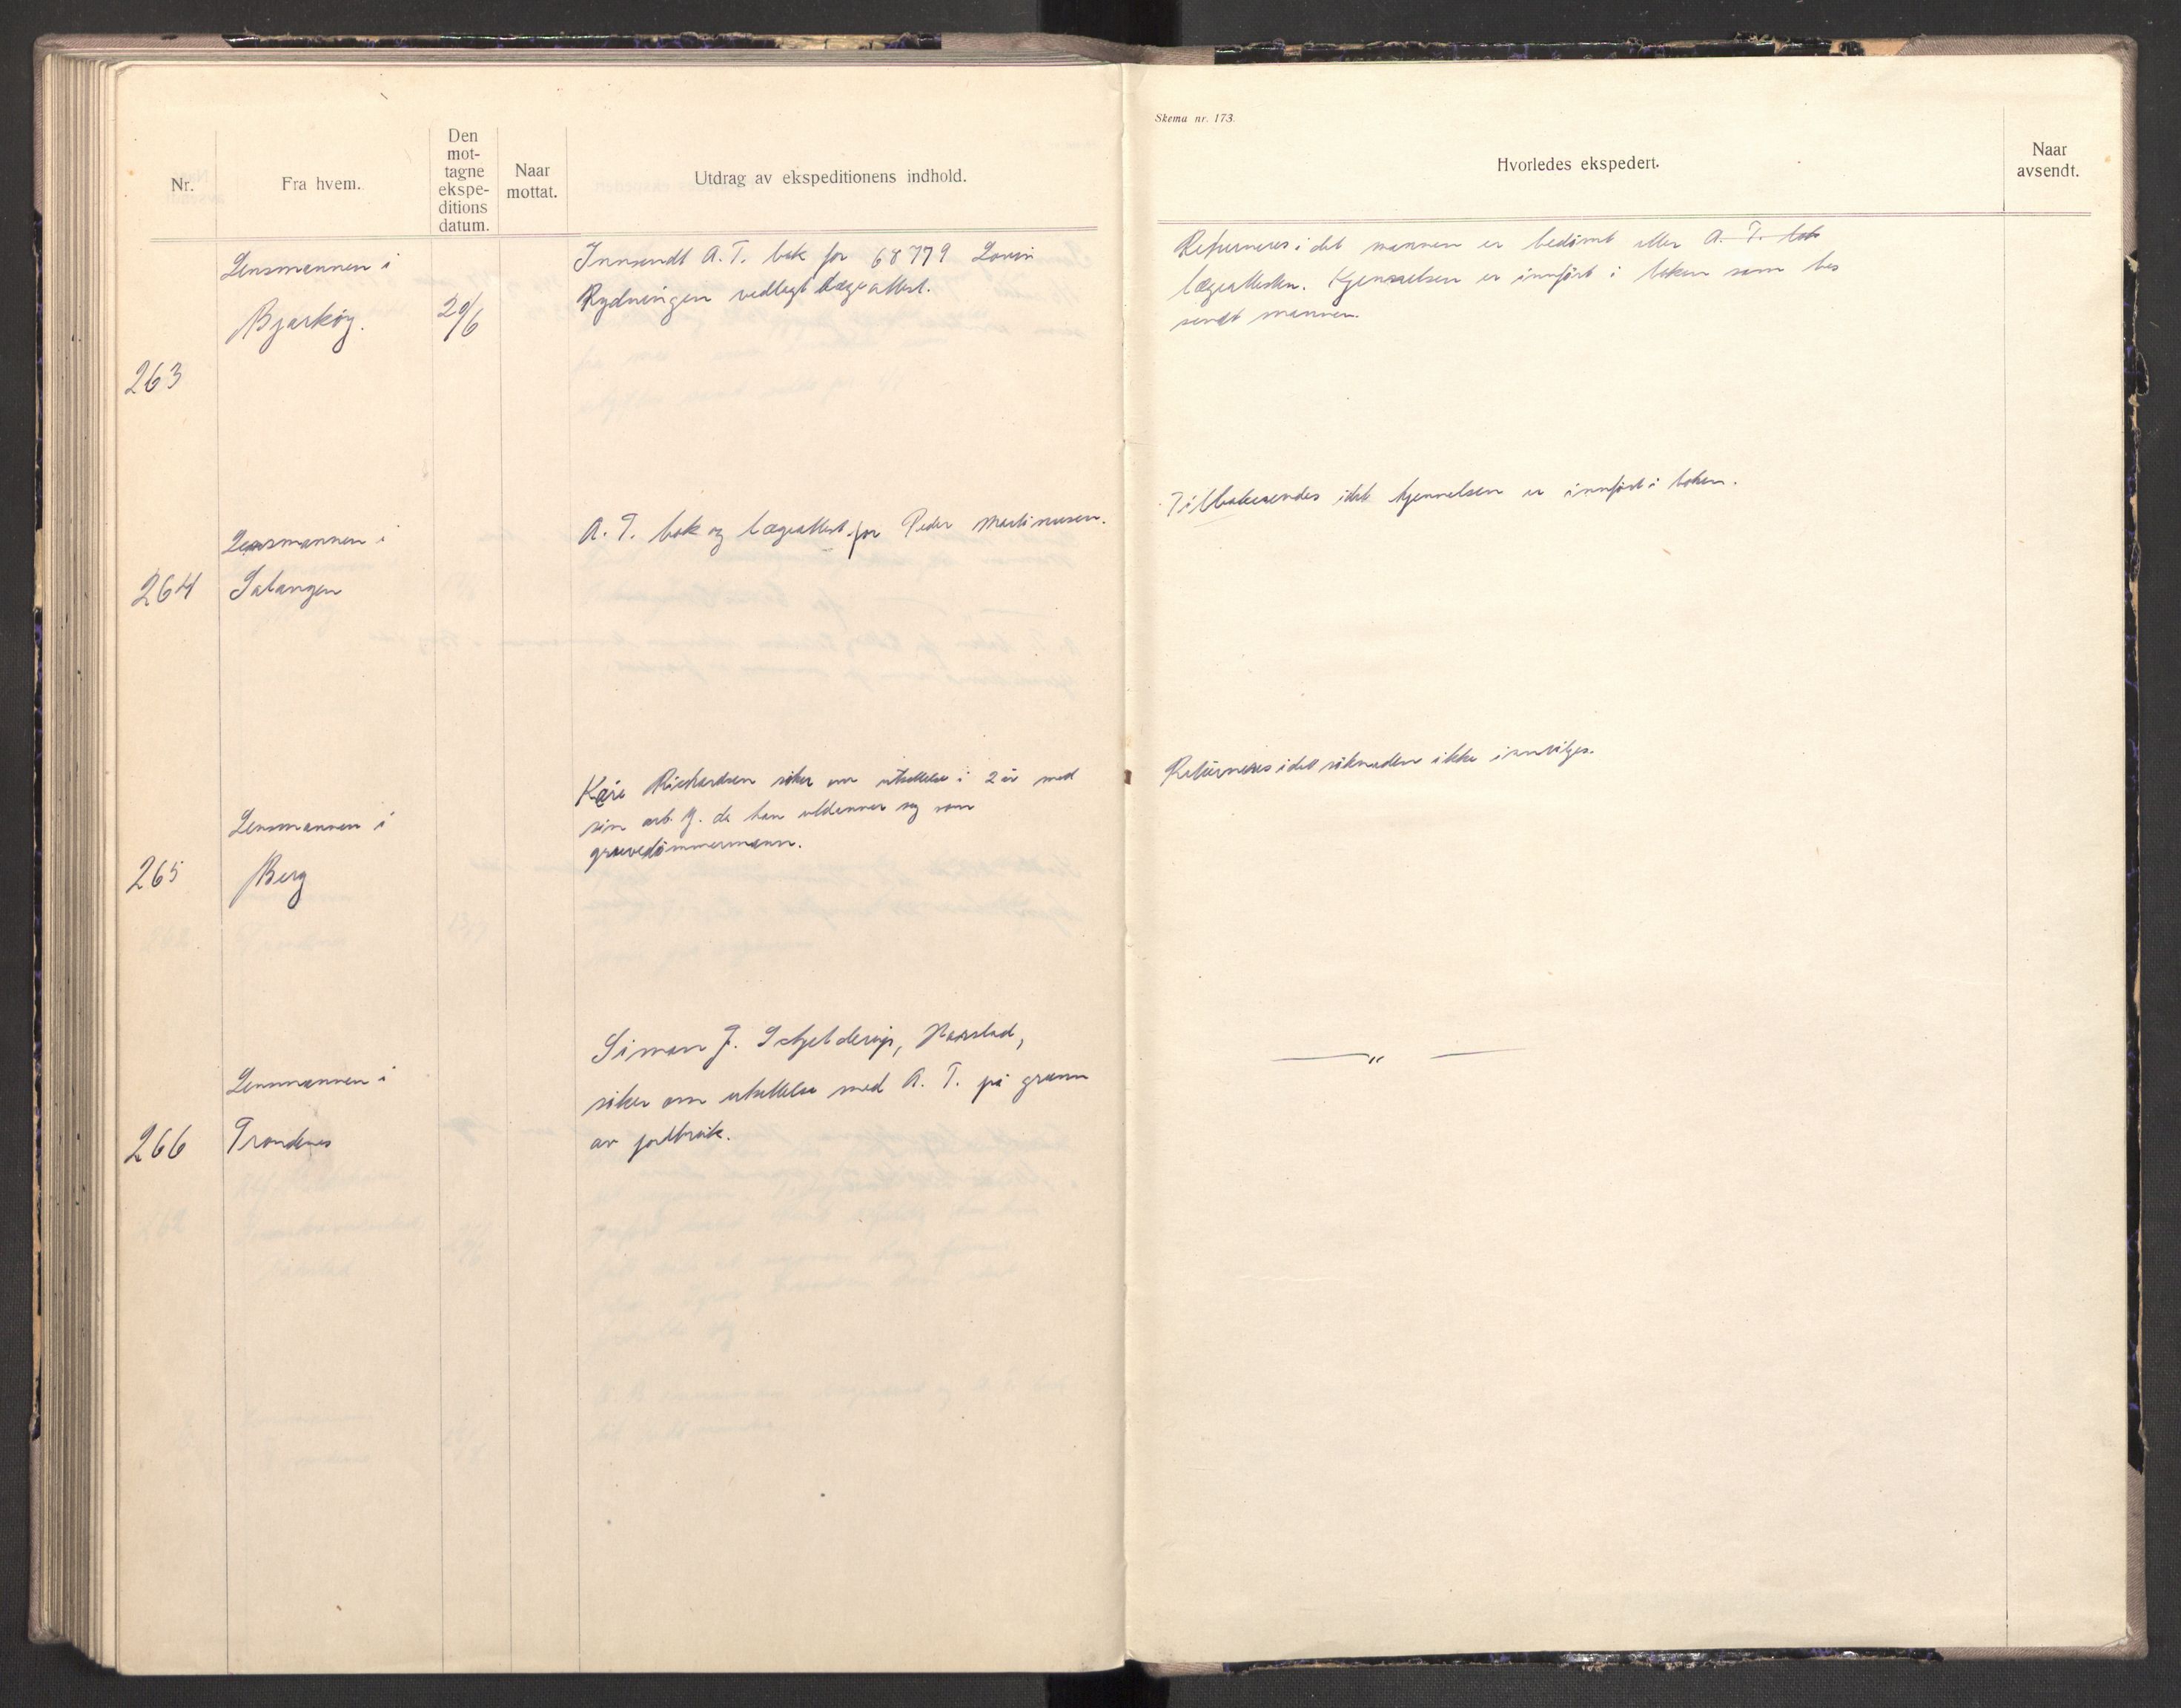 Nr.
Fra hvem.
Den
mot-
tagne
ekspe-
ditions
datum.
Naar
mottat.
Utdrag av ekspeditionens indhold.
263
Lensmannen i
Bjarköy.
20/6
Innsendt A.T. bok for 68779 Lovin
Rydningen vedlagt lægeattest.
264
Lensmannen i
Salangen
A.T. bok og lægeattest for Peder Martinusen.
265
Lensmannen i
Berg
Kåre Richardsen söker om utsettelse i 2 år med
sin arb. tj. da han utdanner seg som
266
Lensmannen i
Trondenes
Simon J. Schjelderup, Harstad,
söker om utsettelse med A.T. på grunn
av
Skema nr. 173.
Hvorledes ekspedert.
Naar
avsendt.
Returneres i det mannen er bedömt etter A. T. bok
lægeattesten. Kjennelsen er innfört i boken som bes
sendt mannen.
Tilbakesendes idet kjennelsen er innfört i boken.
Returneres idet söknaden ikke innvilges.
— " —